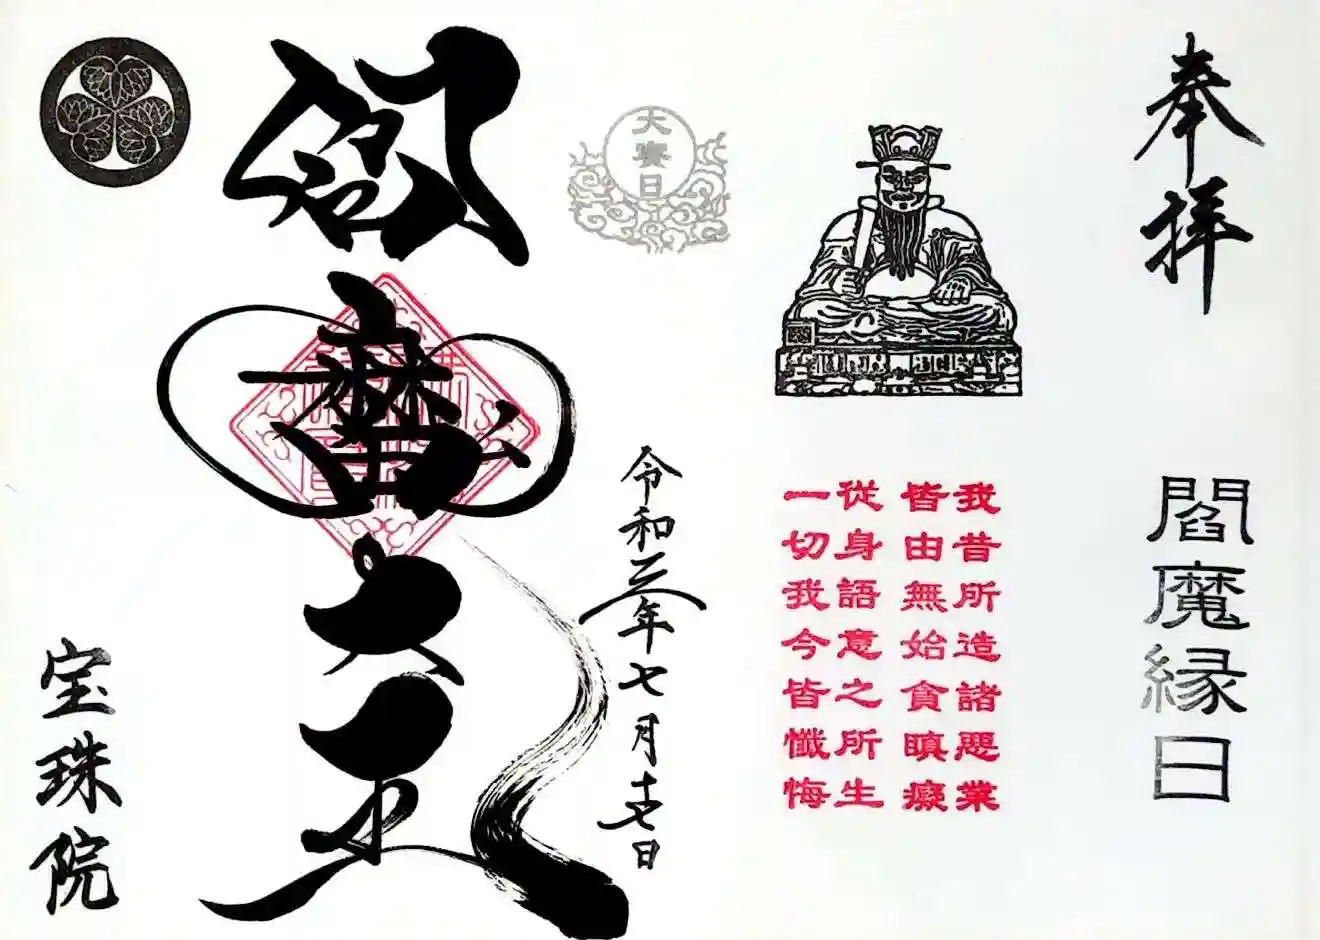 奉拝
閻魔縁日
我昔所造諸悪業
皆由無始貪瞋癡
從身語意之所生
一切我今皆懺悔
大賽日
令和三年七月十七日
閻魔大王
宝珠院